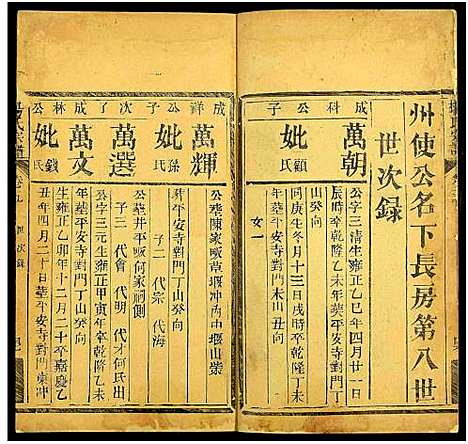 州使公名下長房第八世
世次録
成科公子
萬朝
妣顧氏
公字三清生雍正乙巳年四月廿一日
辰時卒乾隆乙未年葵平安寺對門丁
山癸向
同庚生冬月十三日戌時卒乾隆丁未
年葵平安寺對門未山丑向
女一
成祥公子
萬輝
妣孫氏
公葵陳家畈草堰冲內中堰山崇
葵平安寺對門丁山癸向
子二 代宗 代海
次子
萬選
公葵井平畈何家祠側
子三 代會 代明 代才何氏出
成林公子
萬文
妣錢氏
公字三元生雍正甲寅年卒乾隆乙
年葵平安寺對門丁山癸向
生雍正乙卯年十二月二十卒嘉慶乙
丑年四月二十日葵平安寺對門東冲
卷九 世次録